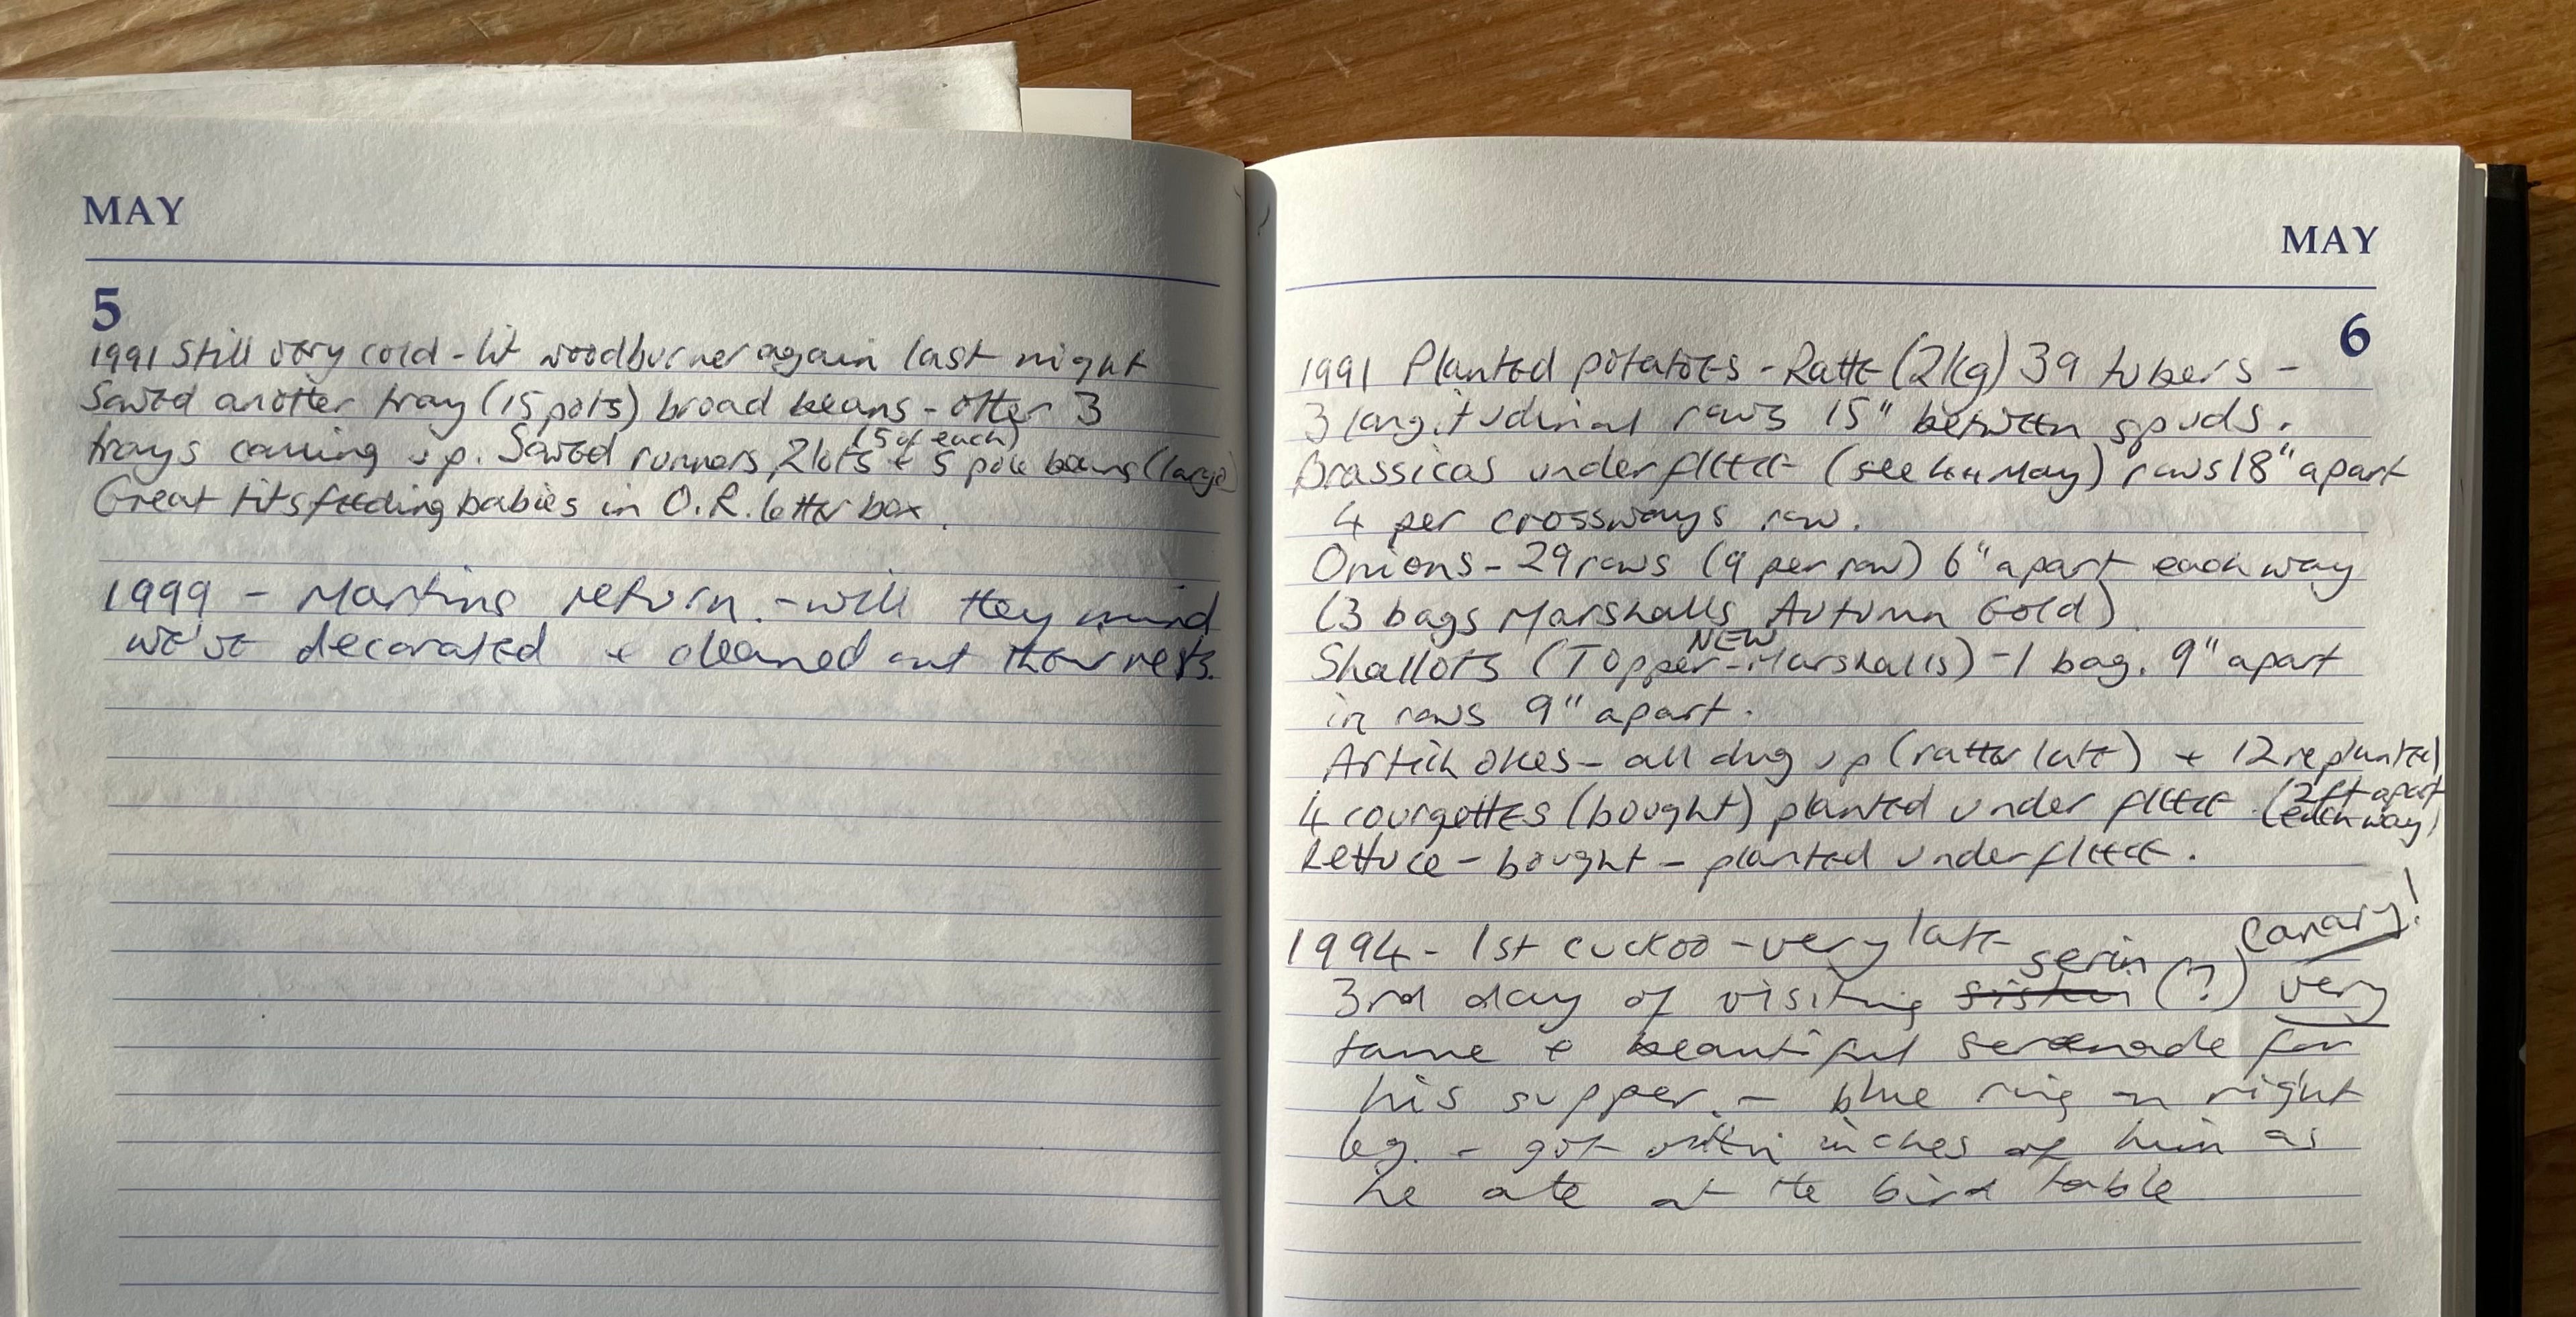 MAY
5
1991 Still very cold - lit woodburner again last night
Sowed another tray (15 pots) broad beans - other 3
trays coming up. Sowed runners, 2 lots (5 of each) + 5 pole beans (large)
Great tits feeding babies in O.R. letter box.
1999 - Martins return - will they mind
we've decorated + cleaned out their nests.
MAY
6
1991 Planted potatoes - Ratte (2kg) 39 tubers -
3 longitudinal rows 15" between spuds.
Brassicas under fleece (see 4th May) rows 18" apart
4 per crossways row.
Onions - 29 rows (9 per row) 6" apart each way
(3 bags Marshalls Autumn Gold)
Shallots (Topper - NEW Marshalls) - 1 bag. 9" apart
in rows 9" apart.
Artichokes - all dug up (rather late) + 12 replanted
(2ft apart each way)
4 courgettes (bought) planted under fleece.
Lettuce - bought - planted under fleece.
1994 - 1st cuckoo - very late
serin Canary!
3rd day of visiting siskin (?) very
tame + beautiful serenade for
his supper. - blue ring on right
leg. - got within inches of him as
he ate at the bird table